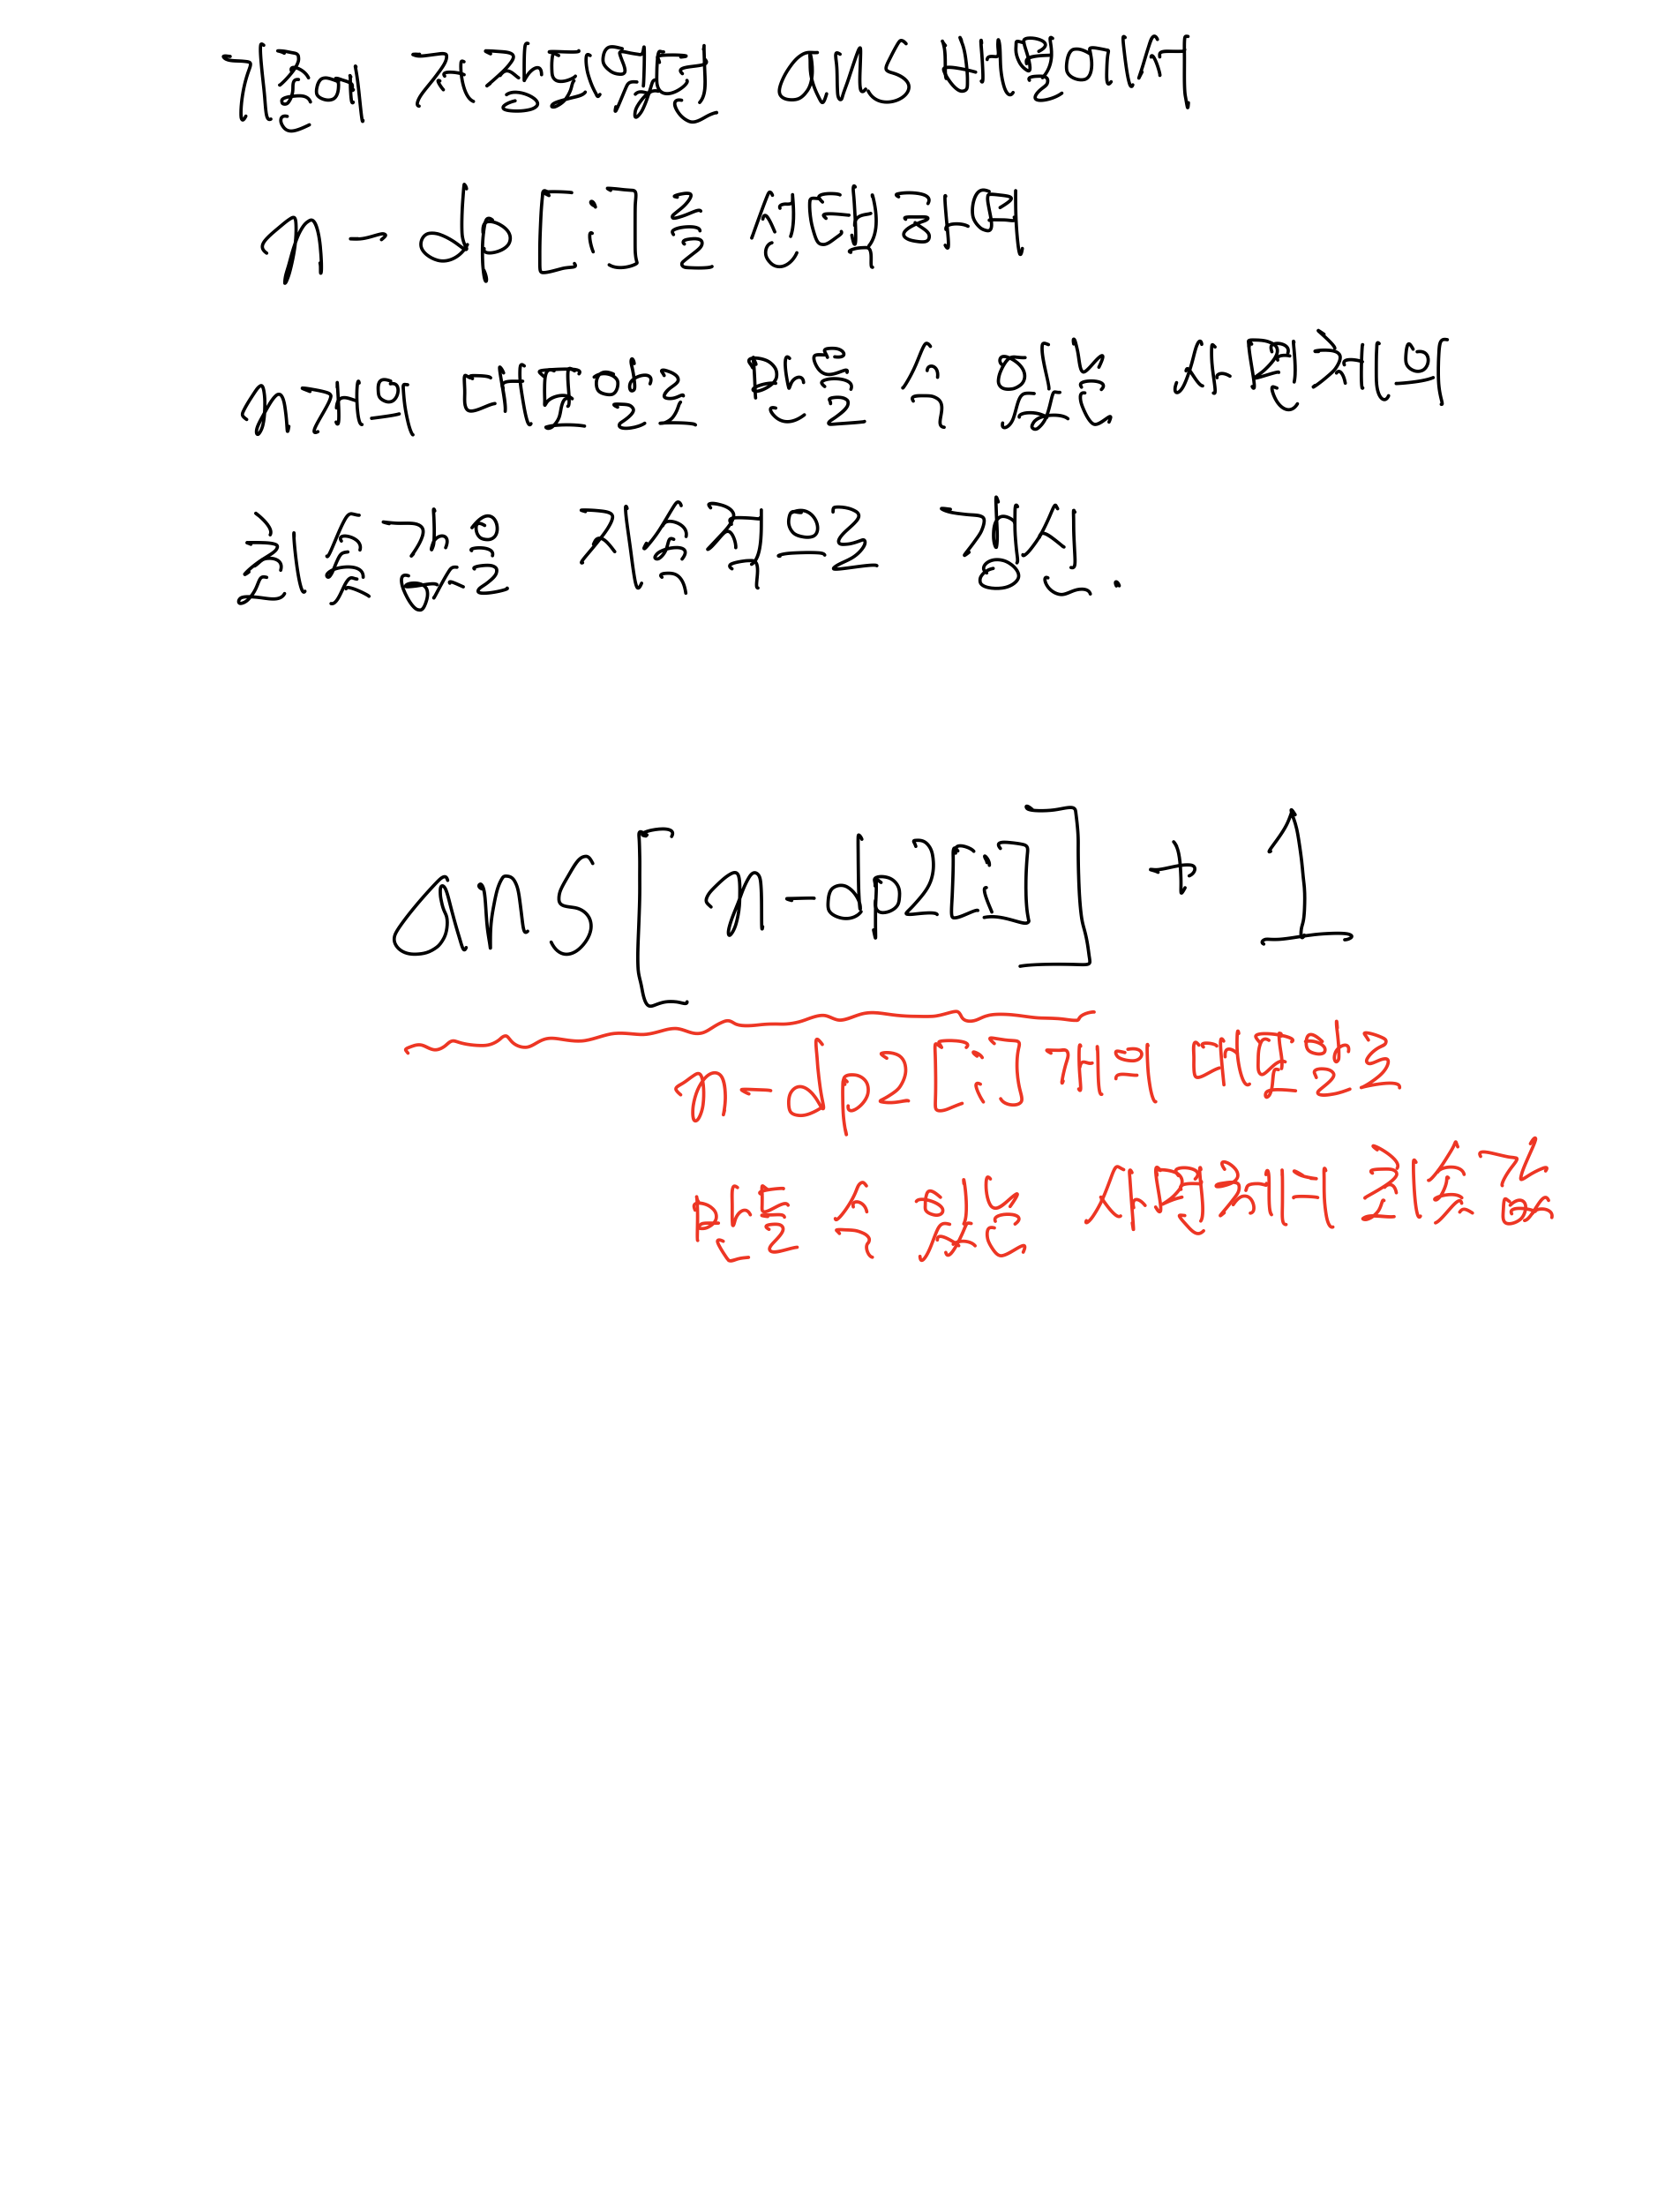 기존에 저장되있던 ans 배열에서
n - dp[i]를 선택하며
n개의 대포알로 만들 수 있는 사면체의
최솟값을 지속적으로 갱신.
ans[n-dp2[i]] + 1
n-dp2[i]개의 대포알로
만들 수 있는 사면체의 최솟값